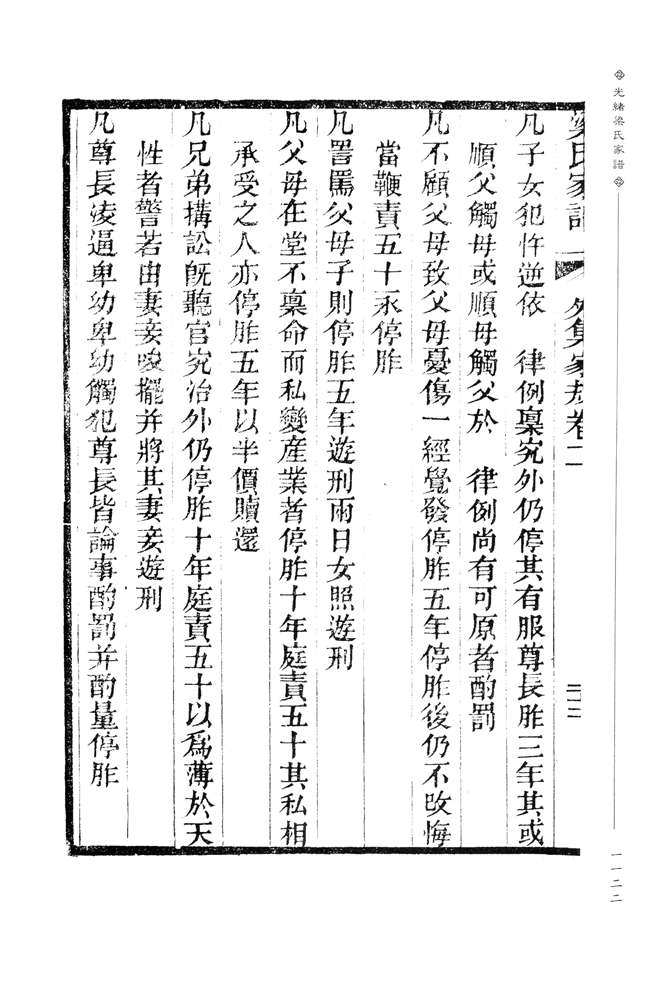 光緒梁氏家譜
一一二二
梁氏家譜 外集家規卷二 三十二
凡子女犯忤逆依 律例稟究外仍停其有服尊長胙三年其或
順父觸母或順母觸父於 律例尚有可原者酌罰
凡不顧父母致父母憂傷一經覺發停胙五年停胙後仍不改悔
當鞭責五十永停胙
凡詈罵父母子則停胙五年遊刑兩日女照遊刑
凡父母在堂不稟命而私變產業者停胙十年庭責五十其私相
承受之人亦停胙五年以半價贖還
凡兄弟搆訟旣聽官究治外仍停胙十年庭責五十以爲薄於天
性者警若由妻妾唆擺并將其妻妾遊刑
凡尊長淩逼卑幼卑幼觸犯尊長皆論事酌罰并酌量停胙